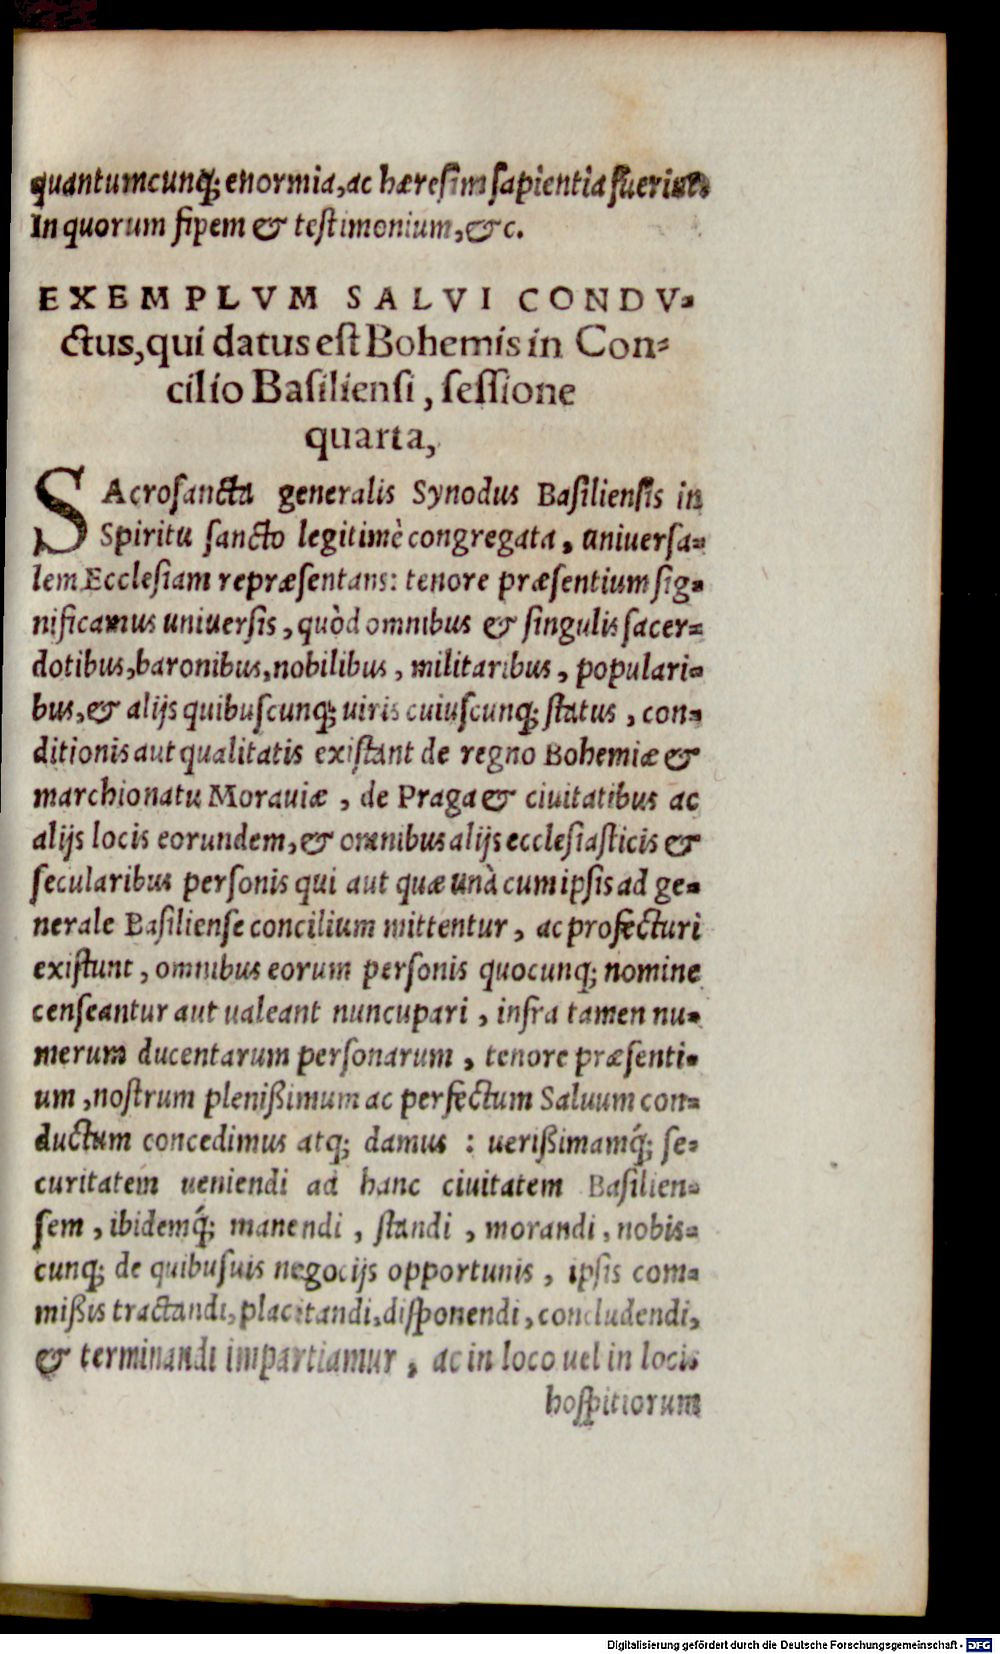 quantumcunq; enormia, ac hæresim sapientia fuerint.
In quorum fipem & testimonium, &c.
EXEMPLVM SALVI CONDV-
ctus, qui datus est Bohemis in Con-
cilio Basiliensi, sessione
quarta,
SAcrosancta generalis Synodus Basiliensis in
Spiritu sancto legitimè congregata, uniuersa-
lem Ecclesiam repræsentans: tenore præsentium sig-
nificamus uniuersis, quòd omnibus & singulis sacer-
dotibus, baronibus, nobilibus, militaribus, populari-
bus, & alijs quibuscunq; uiris cuiuscunq; status, con-
ditionis aut qualitatis existant de regno Bohemiæ &
marchionatu Morauiæ, de Praga & ciuitatibus ac
alijs locis eorundem, & omnibus alijs ecclesiasticis &
secularibus personis qui aut quæ unà cum ipsis ad ge-
nerale Basiliense concilium mittentur, ac profecturi
existunt, omnibus eorum personis quocunq; nomine
censeantur aut ualeant nuncupari, infra tamen nu-
merum ducentarum personarum, tenore præsenti-
um, nostrum plenißimum ac perfectum Saluum con-
ductum concedimus atq; damus: uerißimamq́; se-
curitatem ueniendi ad hanc ciuitatem Basilien-
sem, ibidemq́; manendi, standi, morandi, nobis-
cunq; de quibusuis negocijs opportunis, ipsis com-
mißis tractandi, placitandi, disponendi, concludendi,
& terminandi impartiamur, ac in loco uel in locis
hospitiorum
Digitalisierung gefördert durch die Deutsche Forschungsgemeinschaft - DFG